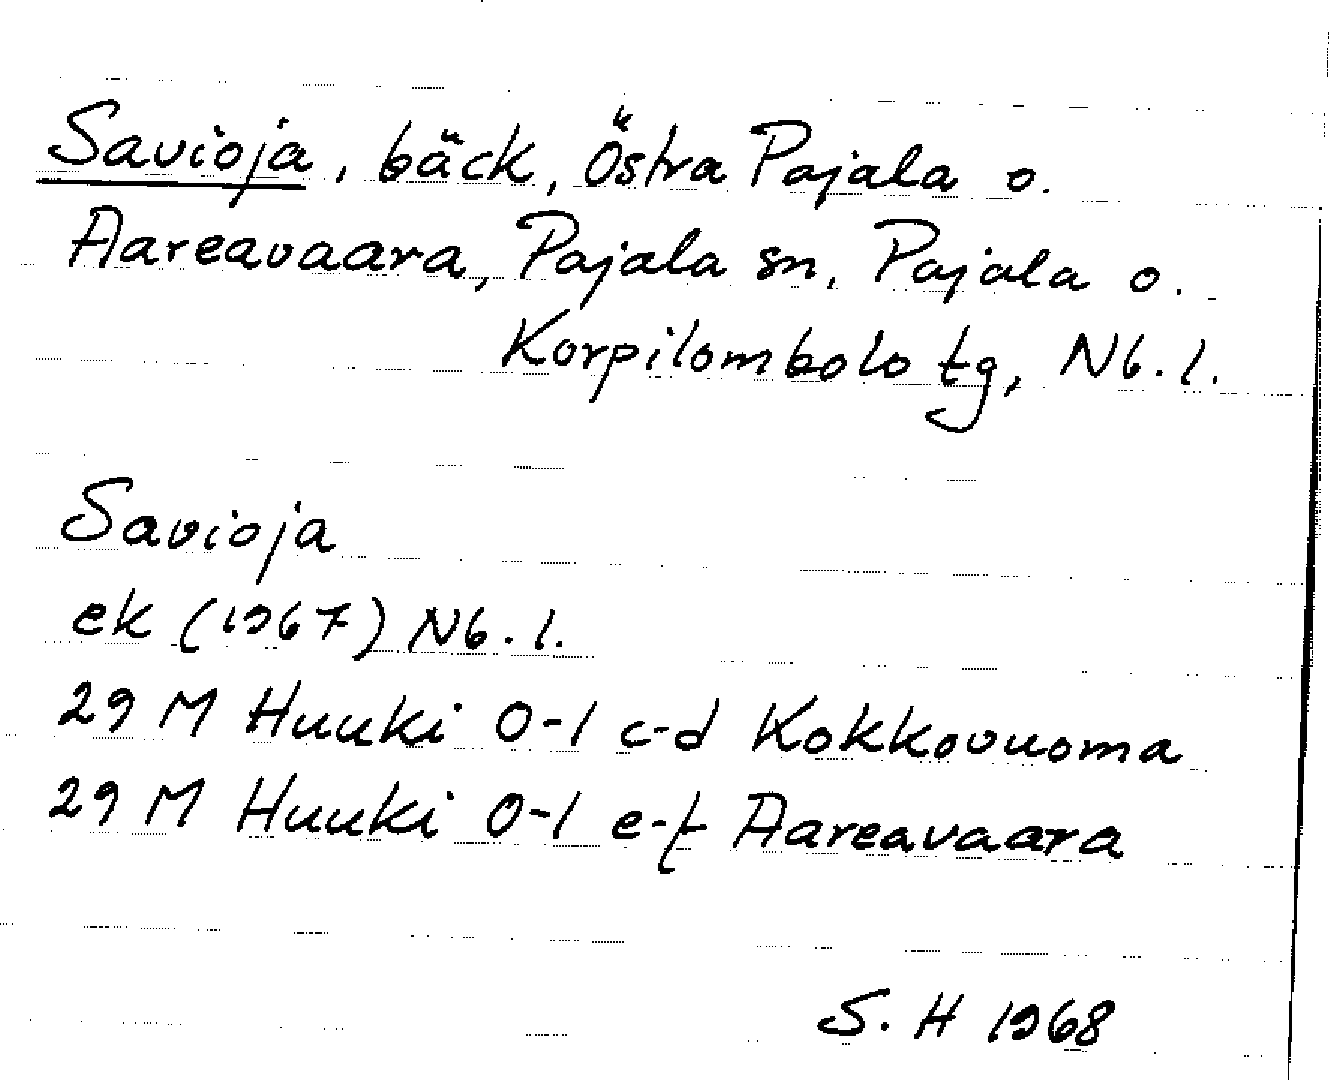 Savioja, bäck, Östra Pajala o.
Aareavaara, Pajala sn, Pajala o.
Korpilombolo tg, Nb. l.
Savioja
ek (1967) Nb. l.
29 M Huuki 0-1 c-d Kokkovuoma
29 M Huuki 0-1 e-f Aareavaara
S. H 1968